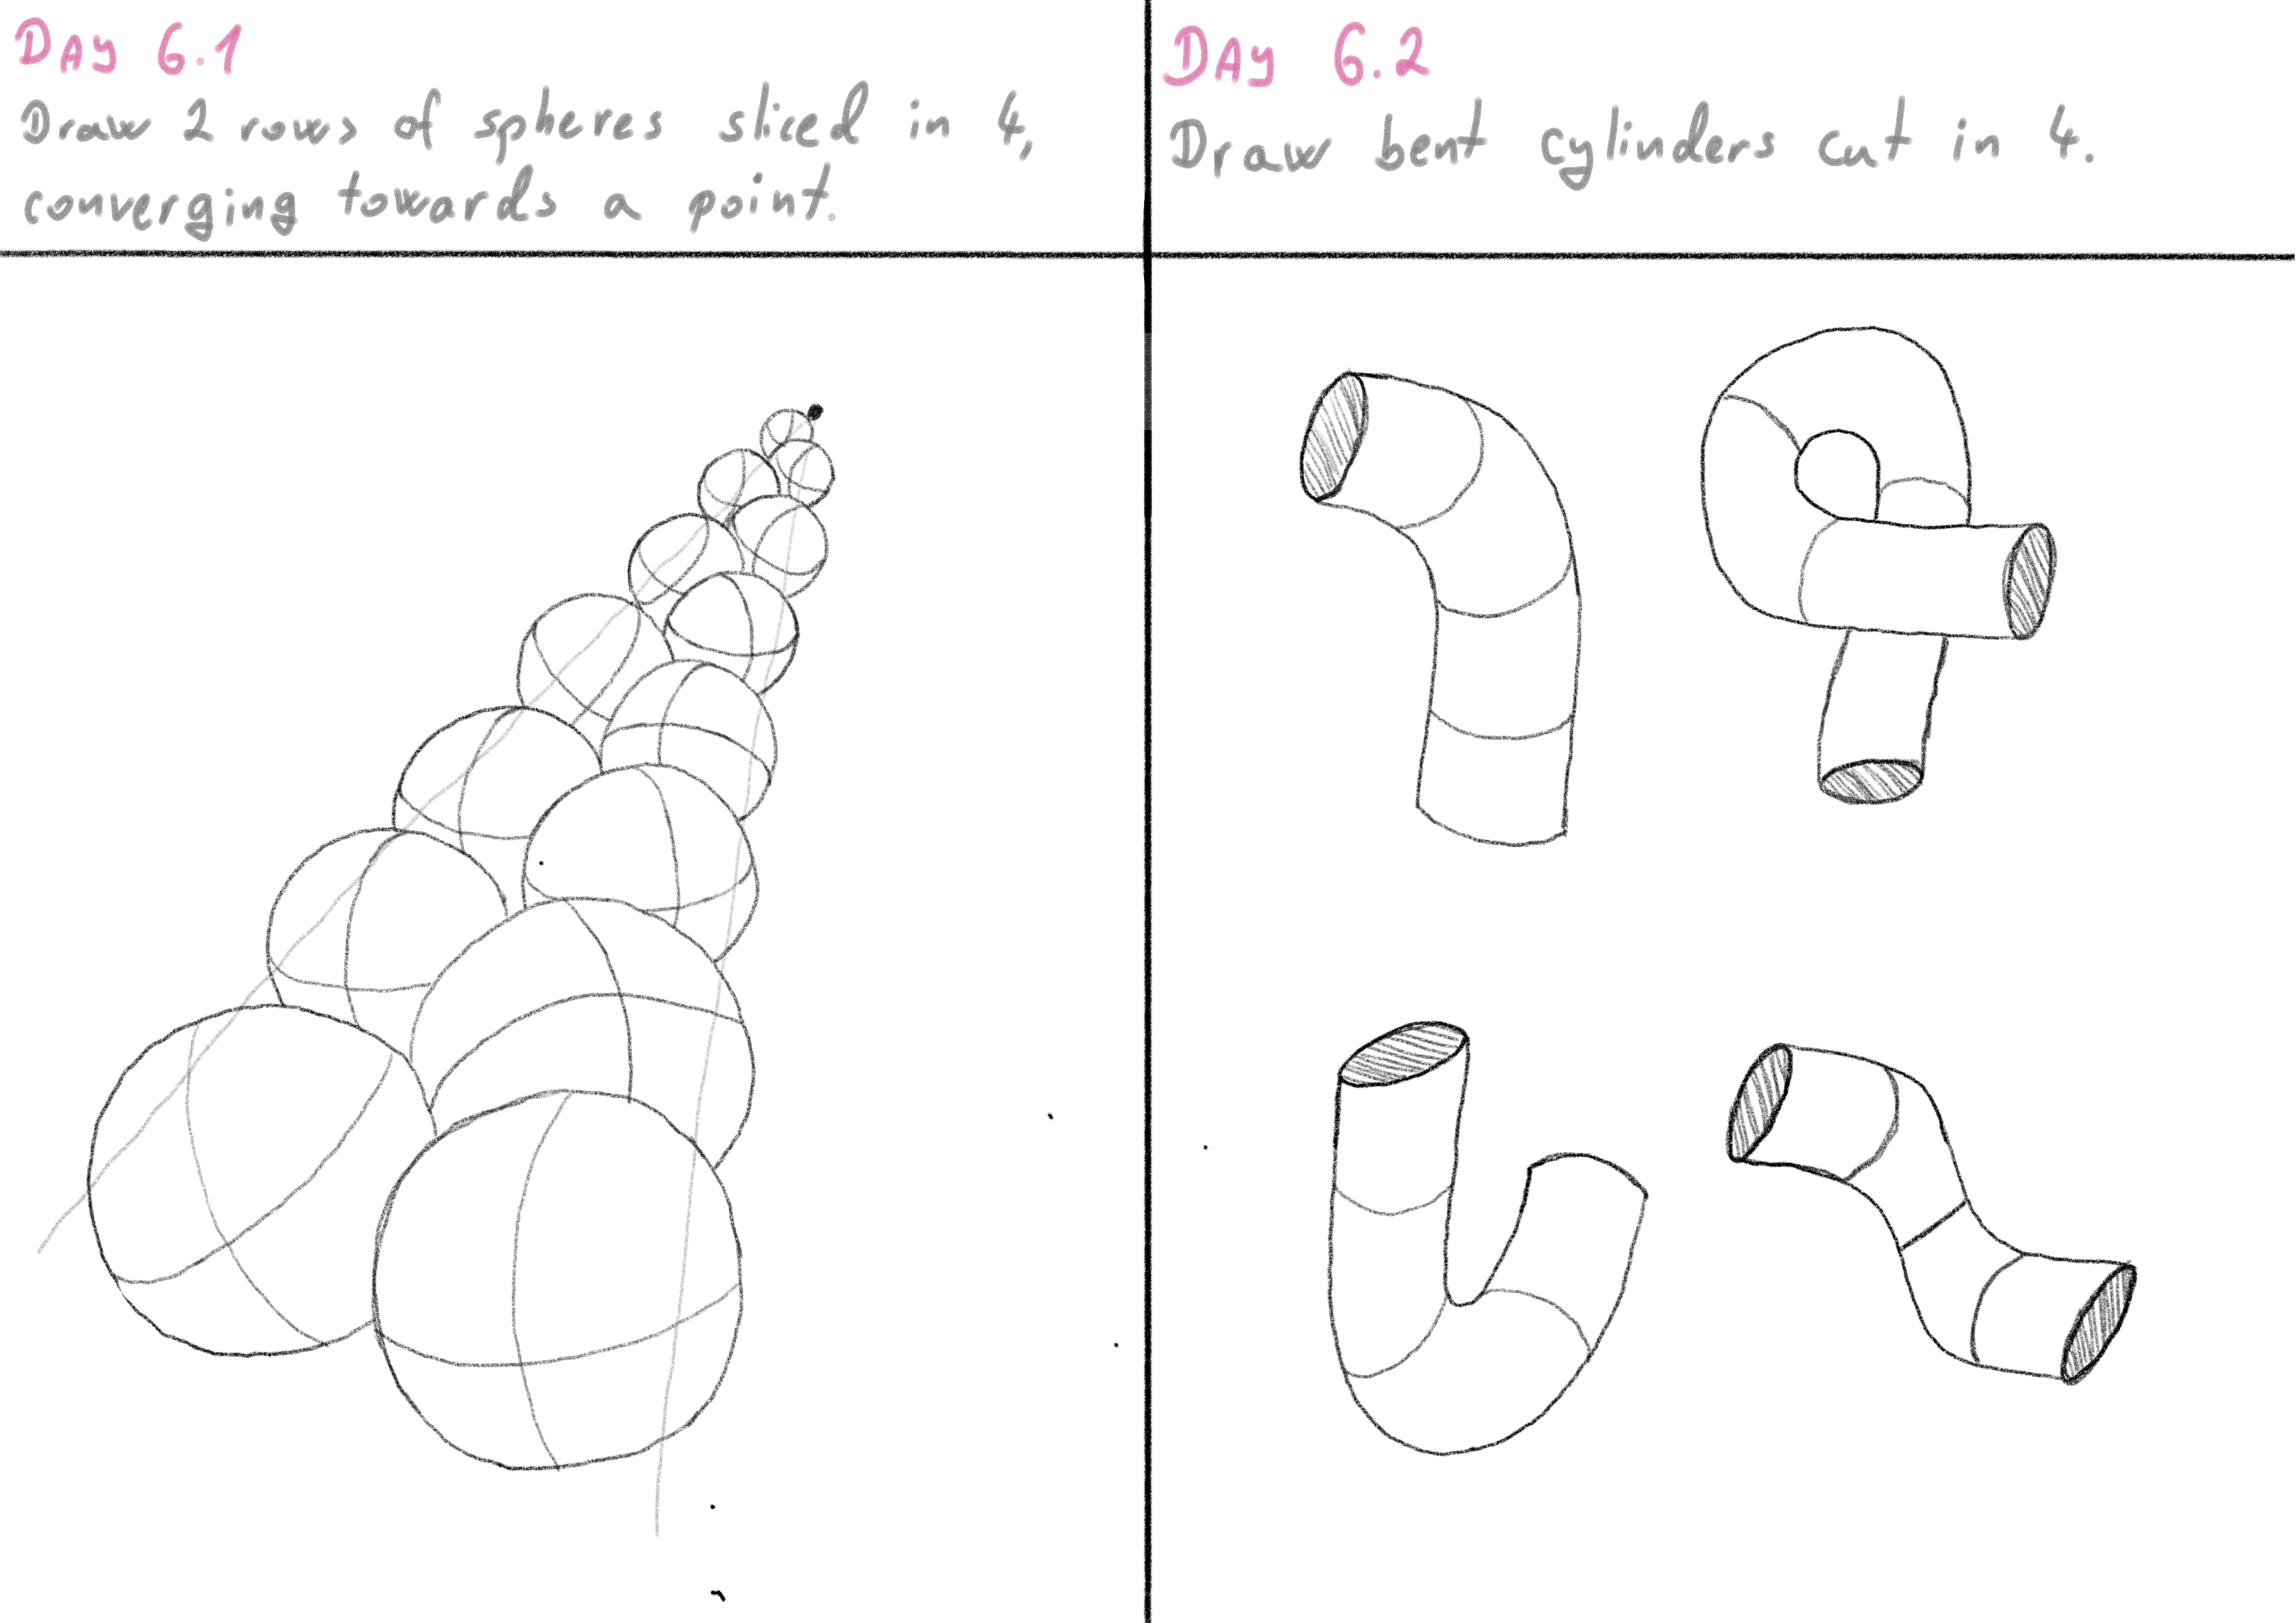 DAY 6.1
Draw 2 rows of spheres sliced in 4,
converging towards a point.
DAY 6.2
Draw bent cylinders cut in 4.